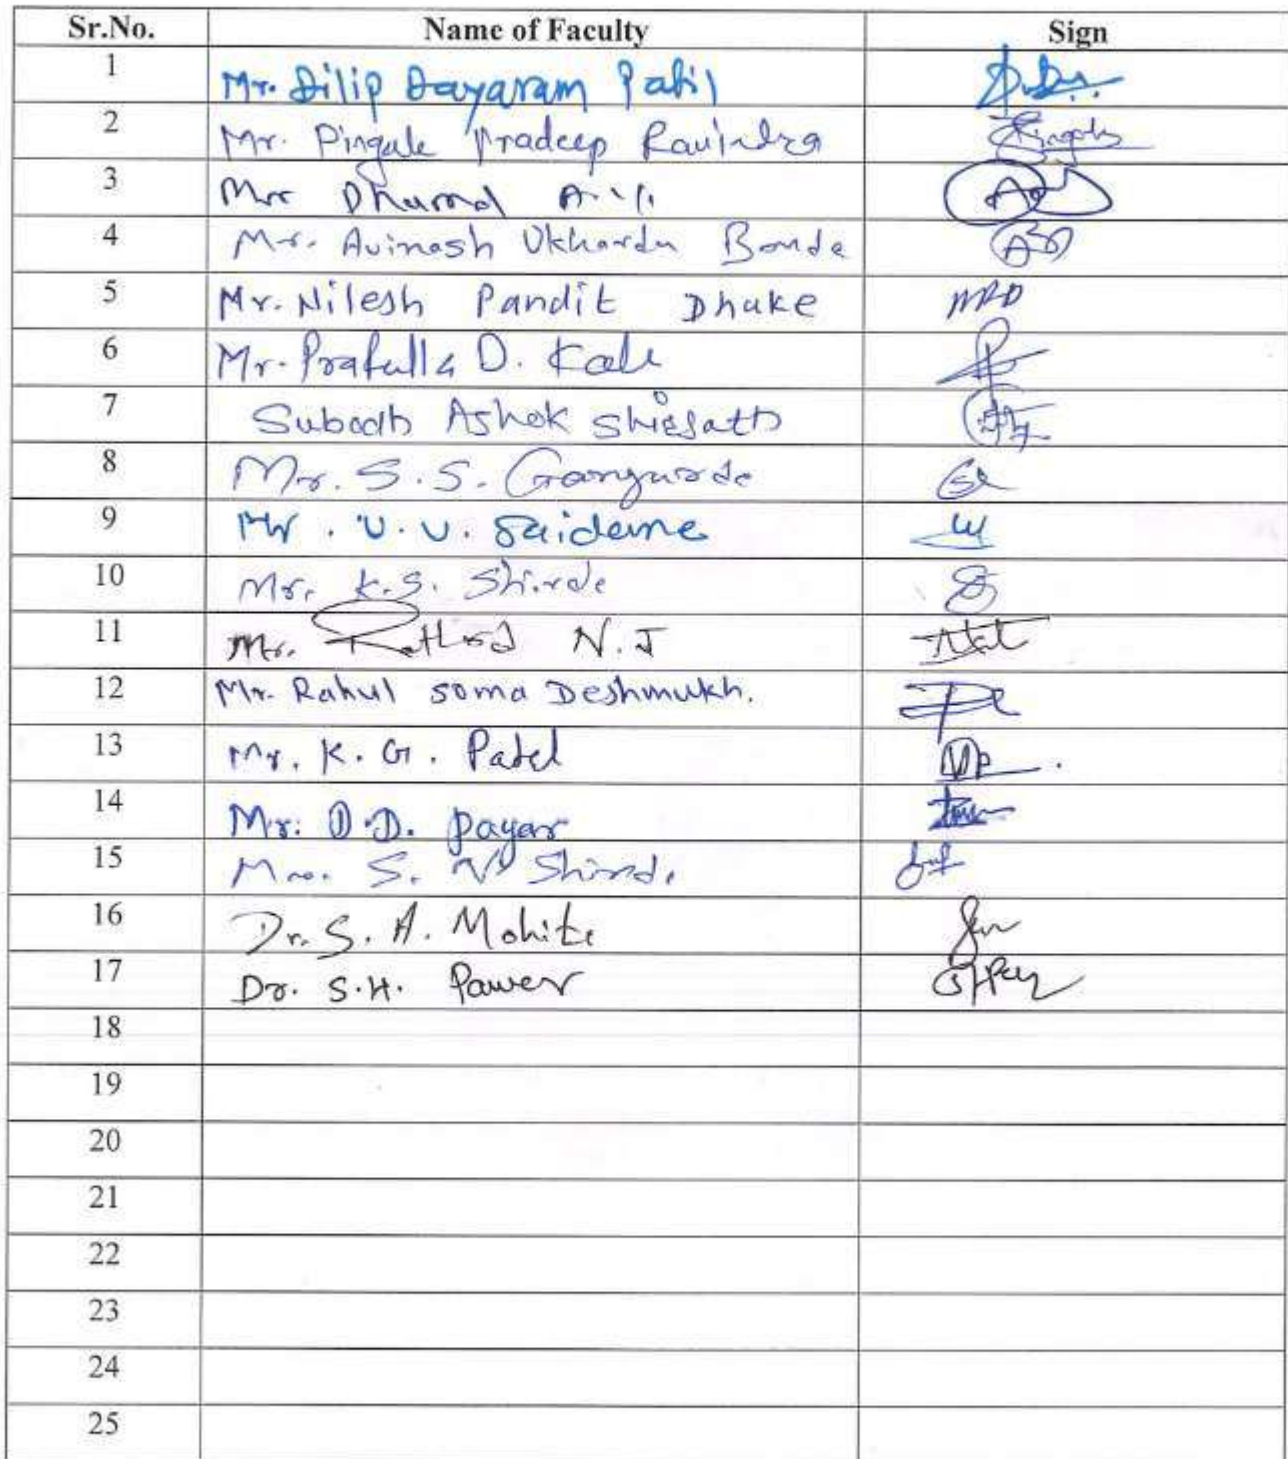 Sr.No. Name of Faculty Sign
1 Mr. Dilip Dayaram Patil
2 Mr. Pingale Pradeep Ravindra
3 Mr Dhumal
4 Mr. Avinash Ukhardu Bonde
5 Mr. Nilesh Pandit Dhake NPD
6 Mr. Prafulla D. Kale
7 Subodh Ashok Shirsath
8 Mr. S. S. Gangurde
9 Mr. V. V. Saidane
10 Mr. K.S. Shinde
11 Mr. Rathod N.J
12 Mr. Rahul Soma Deshmukh.
13 Mr. K. G. Patel
14 Mr. D.D. Payar
15 S. Shinde
16 Dr. S. A. Mohite
17 Dr. S.H. Pawar
18
19
20
21
22
23
24
25